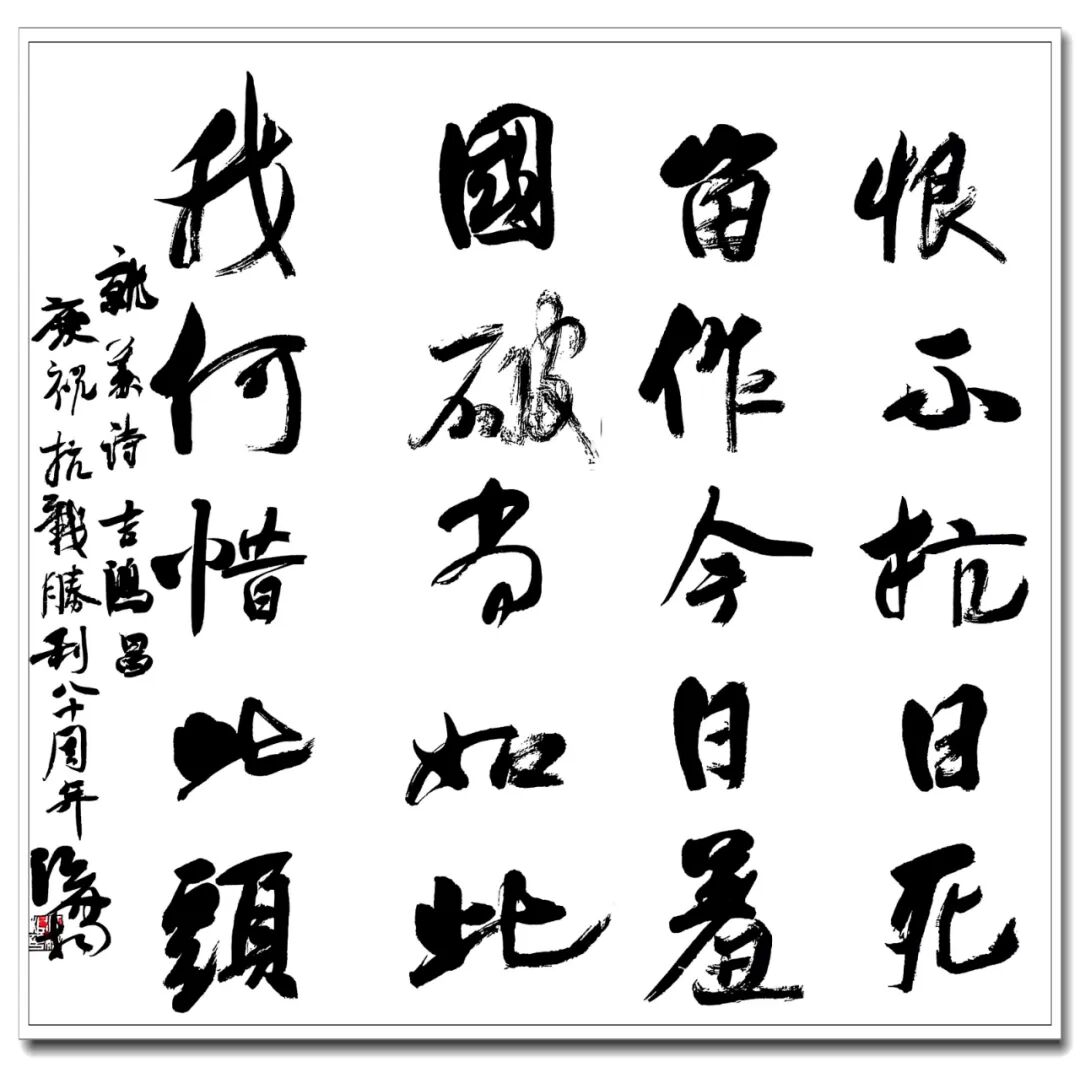 恨不抗日死
留作今日羞
國破尚如此
我何惜此頭
就義诗吉鴻昌
慶祝抗戰勝利八十周年